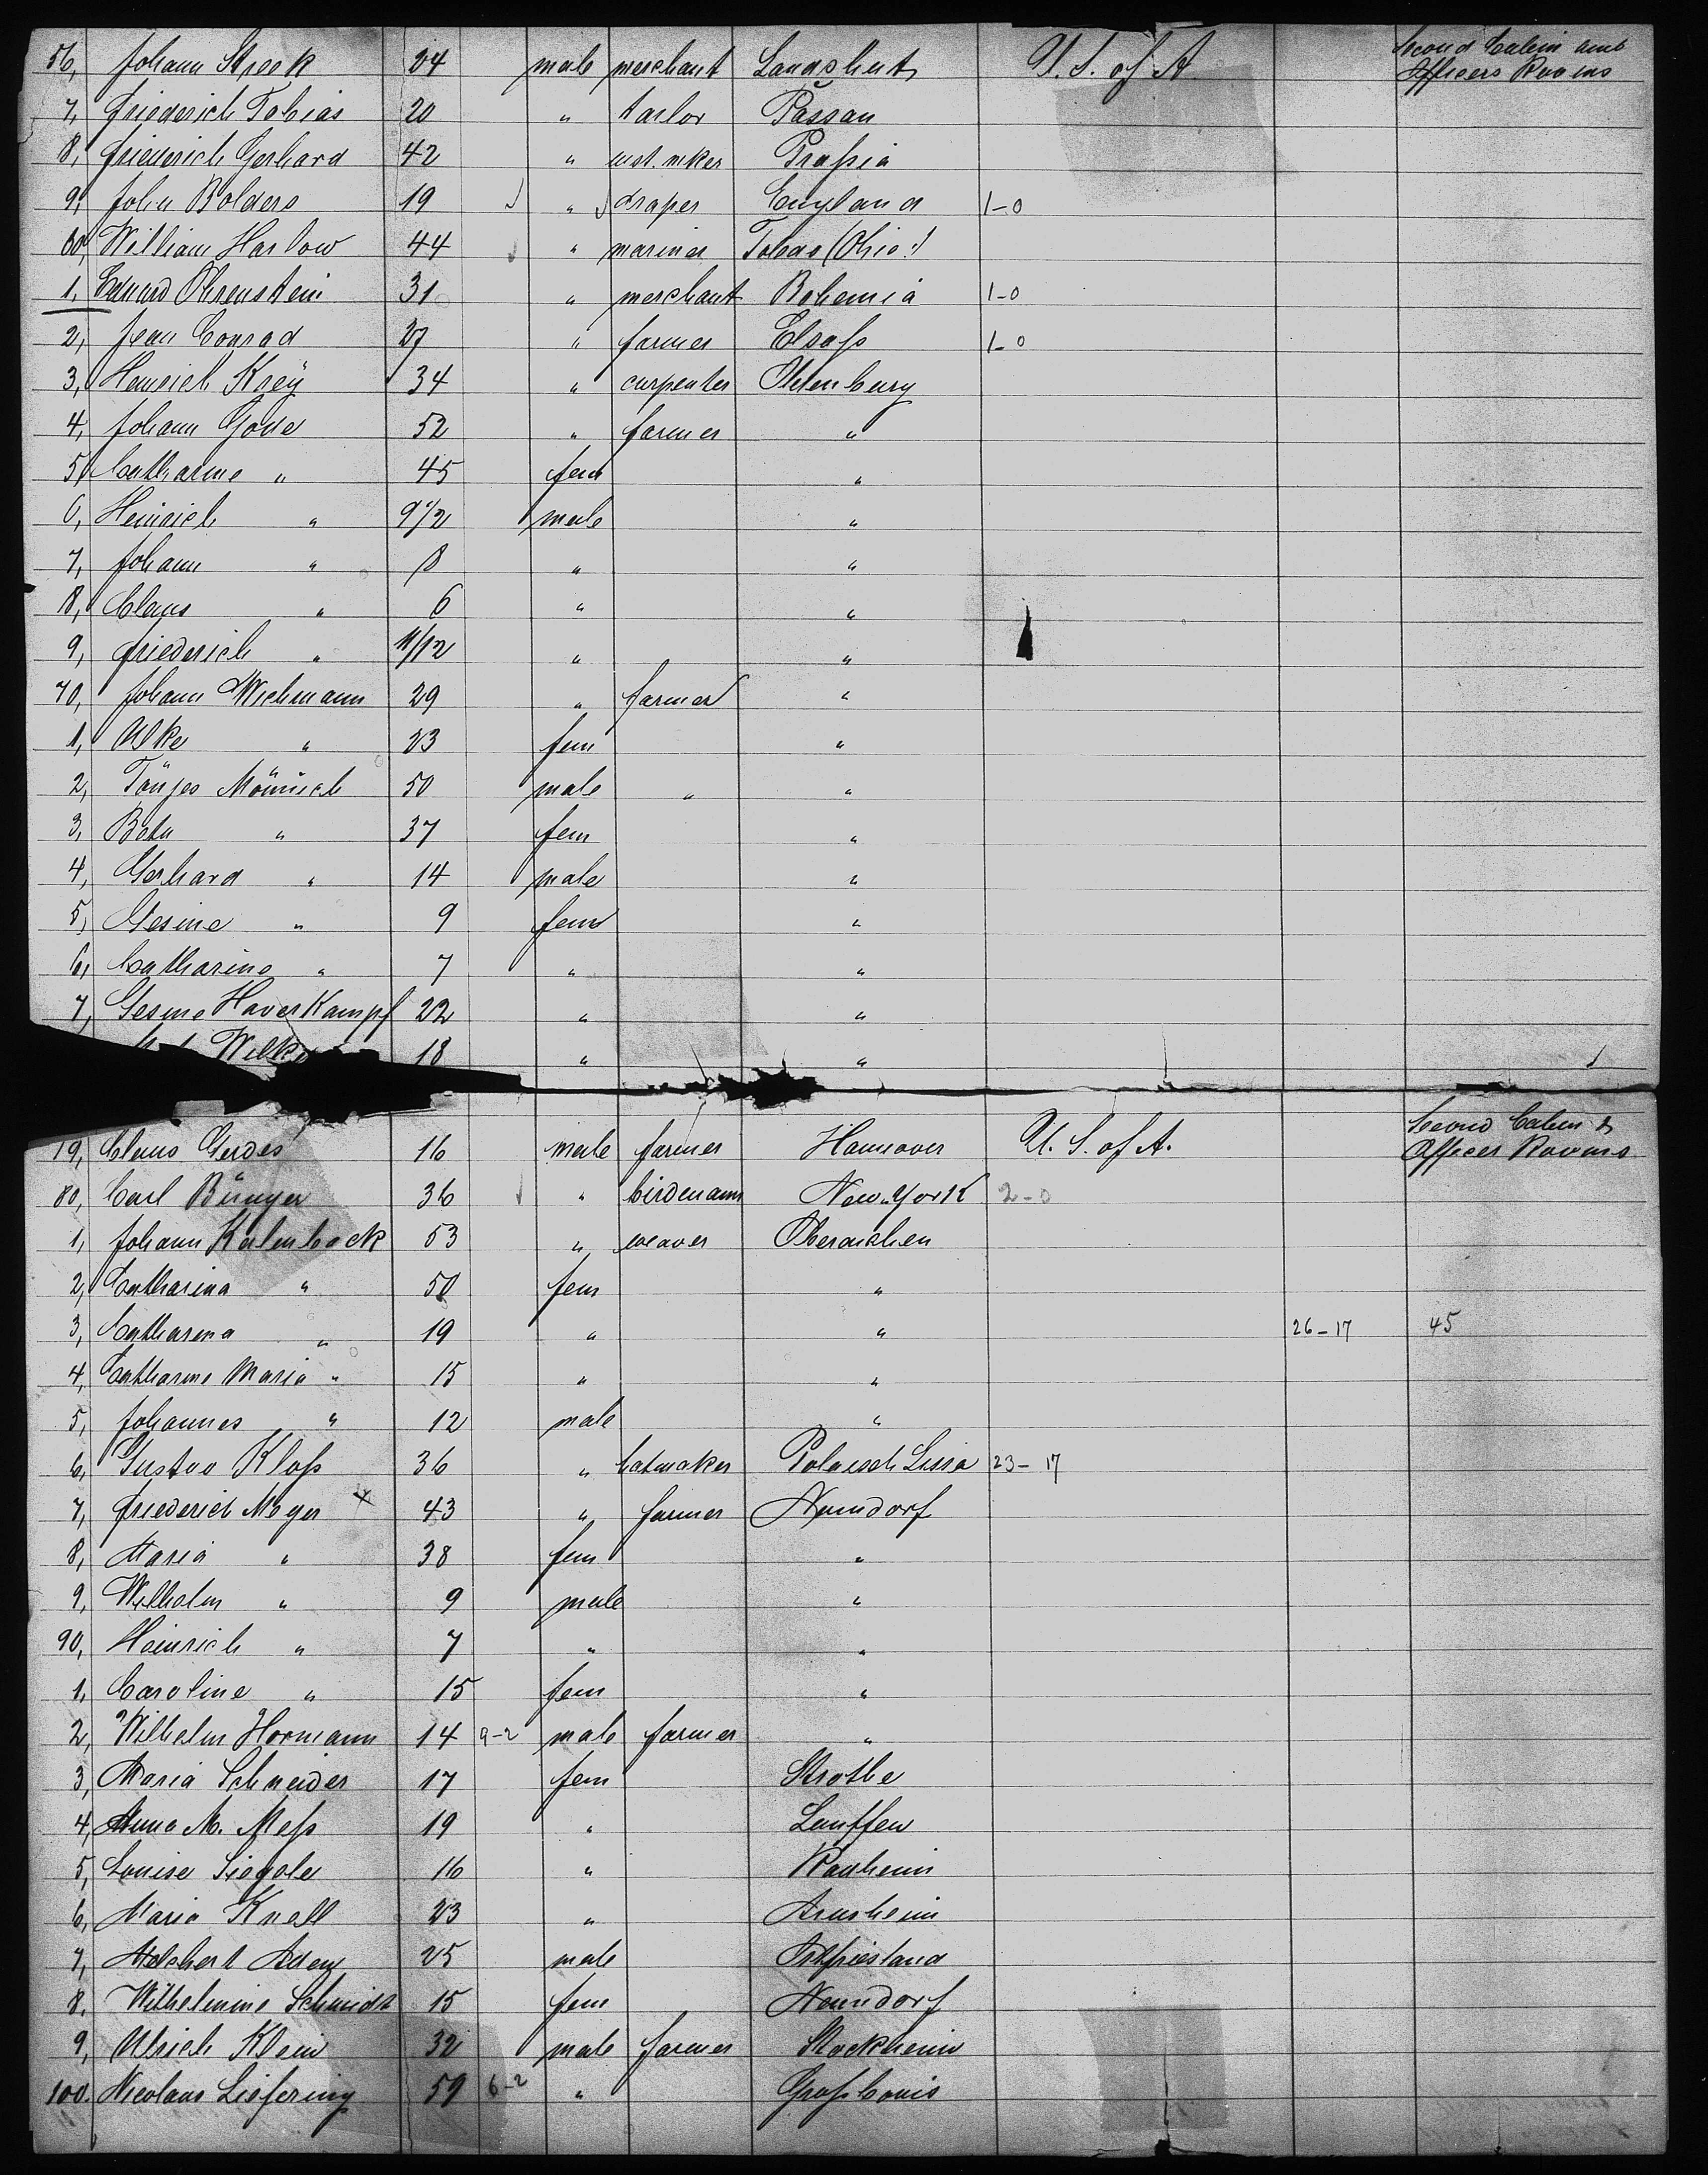 56, Johann Streek 24 male merchant Landshut U. S. of A. Second Cabin and Officers Rooms
7, Friederich Tobias 20 " tailor Passau
8, Friederich Gerhard 42 " inst. mker Prussia
9, John Bolders 19 " draper England 1-0
60, William Harlow 44 " mariner Toledo (Ohio!)
1, Eduard Ohrenstein 31 " merchant Bohemia 1-0
2, Jean Conrad 27 " farmer Elsaß 1-0
3, Heinrich Kreÿ 34 " carpenter Oldenburg
4, Johann 52 " farmer "
5, Catharine " 45 fem "
6, Heinrich " 9 1/2 male "
7, Johann " 8 " "
8, Claus " 6 " "
9, Friederich " 11/12 " "
70, Johann Wichmann 29 " farmer "
1, Alke " 23 fem "
2, Tönjes Mönnich 50 male " "
3, Beta " 37 fem "
4, Gerhard " 14 male "
5, Gesine " 9 fem "
6, Catharine " 7 " "
7, Gesine Haverkampf 22 " "
18 " "
79, Claus Gerdes 16 male farmer Hannover U. S. of A. Second Cabin & Officer Rooms
80, Carl Bünger 36 " New-York 2-0
1, Johann Kalenback 53 " weaver
2, Catharina " 50 fem "
3, Catharina " 19 " " 26-17 45
4, Catharine Maria " 15 " "
5, Johannes " 12 male "
6, Gustav Kloß 36 " hatmaker Polnisch Lissa 23-17
7, Friederich Meyer x 43 " farmer Nenndorf
8, Maria " 38 fem "
9, Wilhelm " 9 male "
90, Heinrich " 7 " "
1, Caroline " 15 fem "
2, Wilhelm Hormann 14 9-2 male farmer "
3, Maria Schneider 17 fem Strothe
4, Anna M. Meß 19 " Lauffen
5, Louise Siegole 16 "
6, Maria Knell 23 " Armsheim
7, 25 male Ostfriesland
8, Wilhelmine Schmidt 15 fem Nenndorf
9, Ulrich Klein 32 male farmer Stockheim
100. Nicolaus Liefering 59 6-2 "